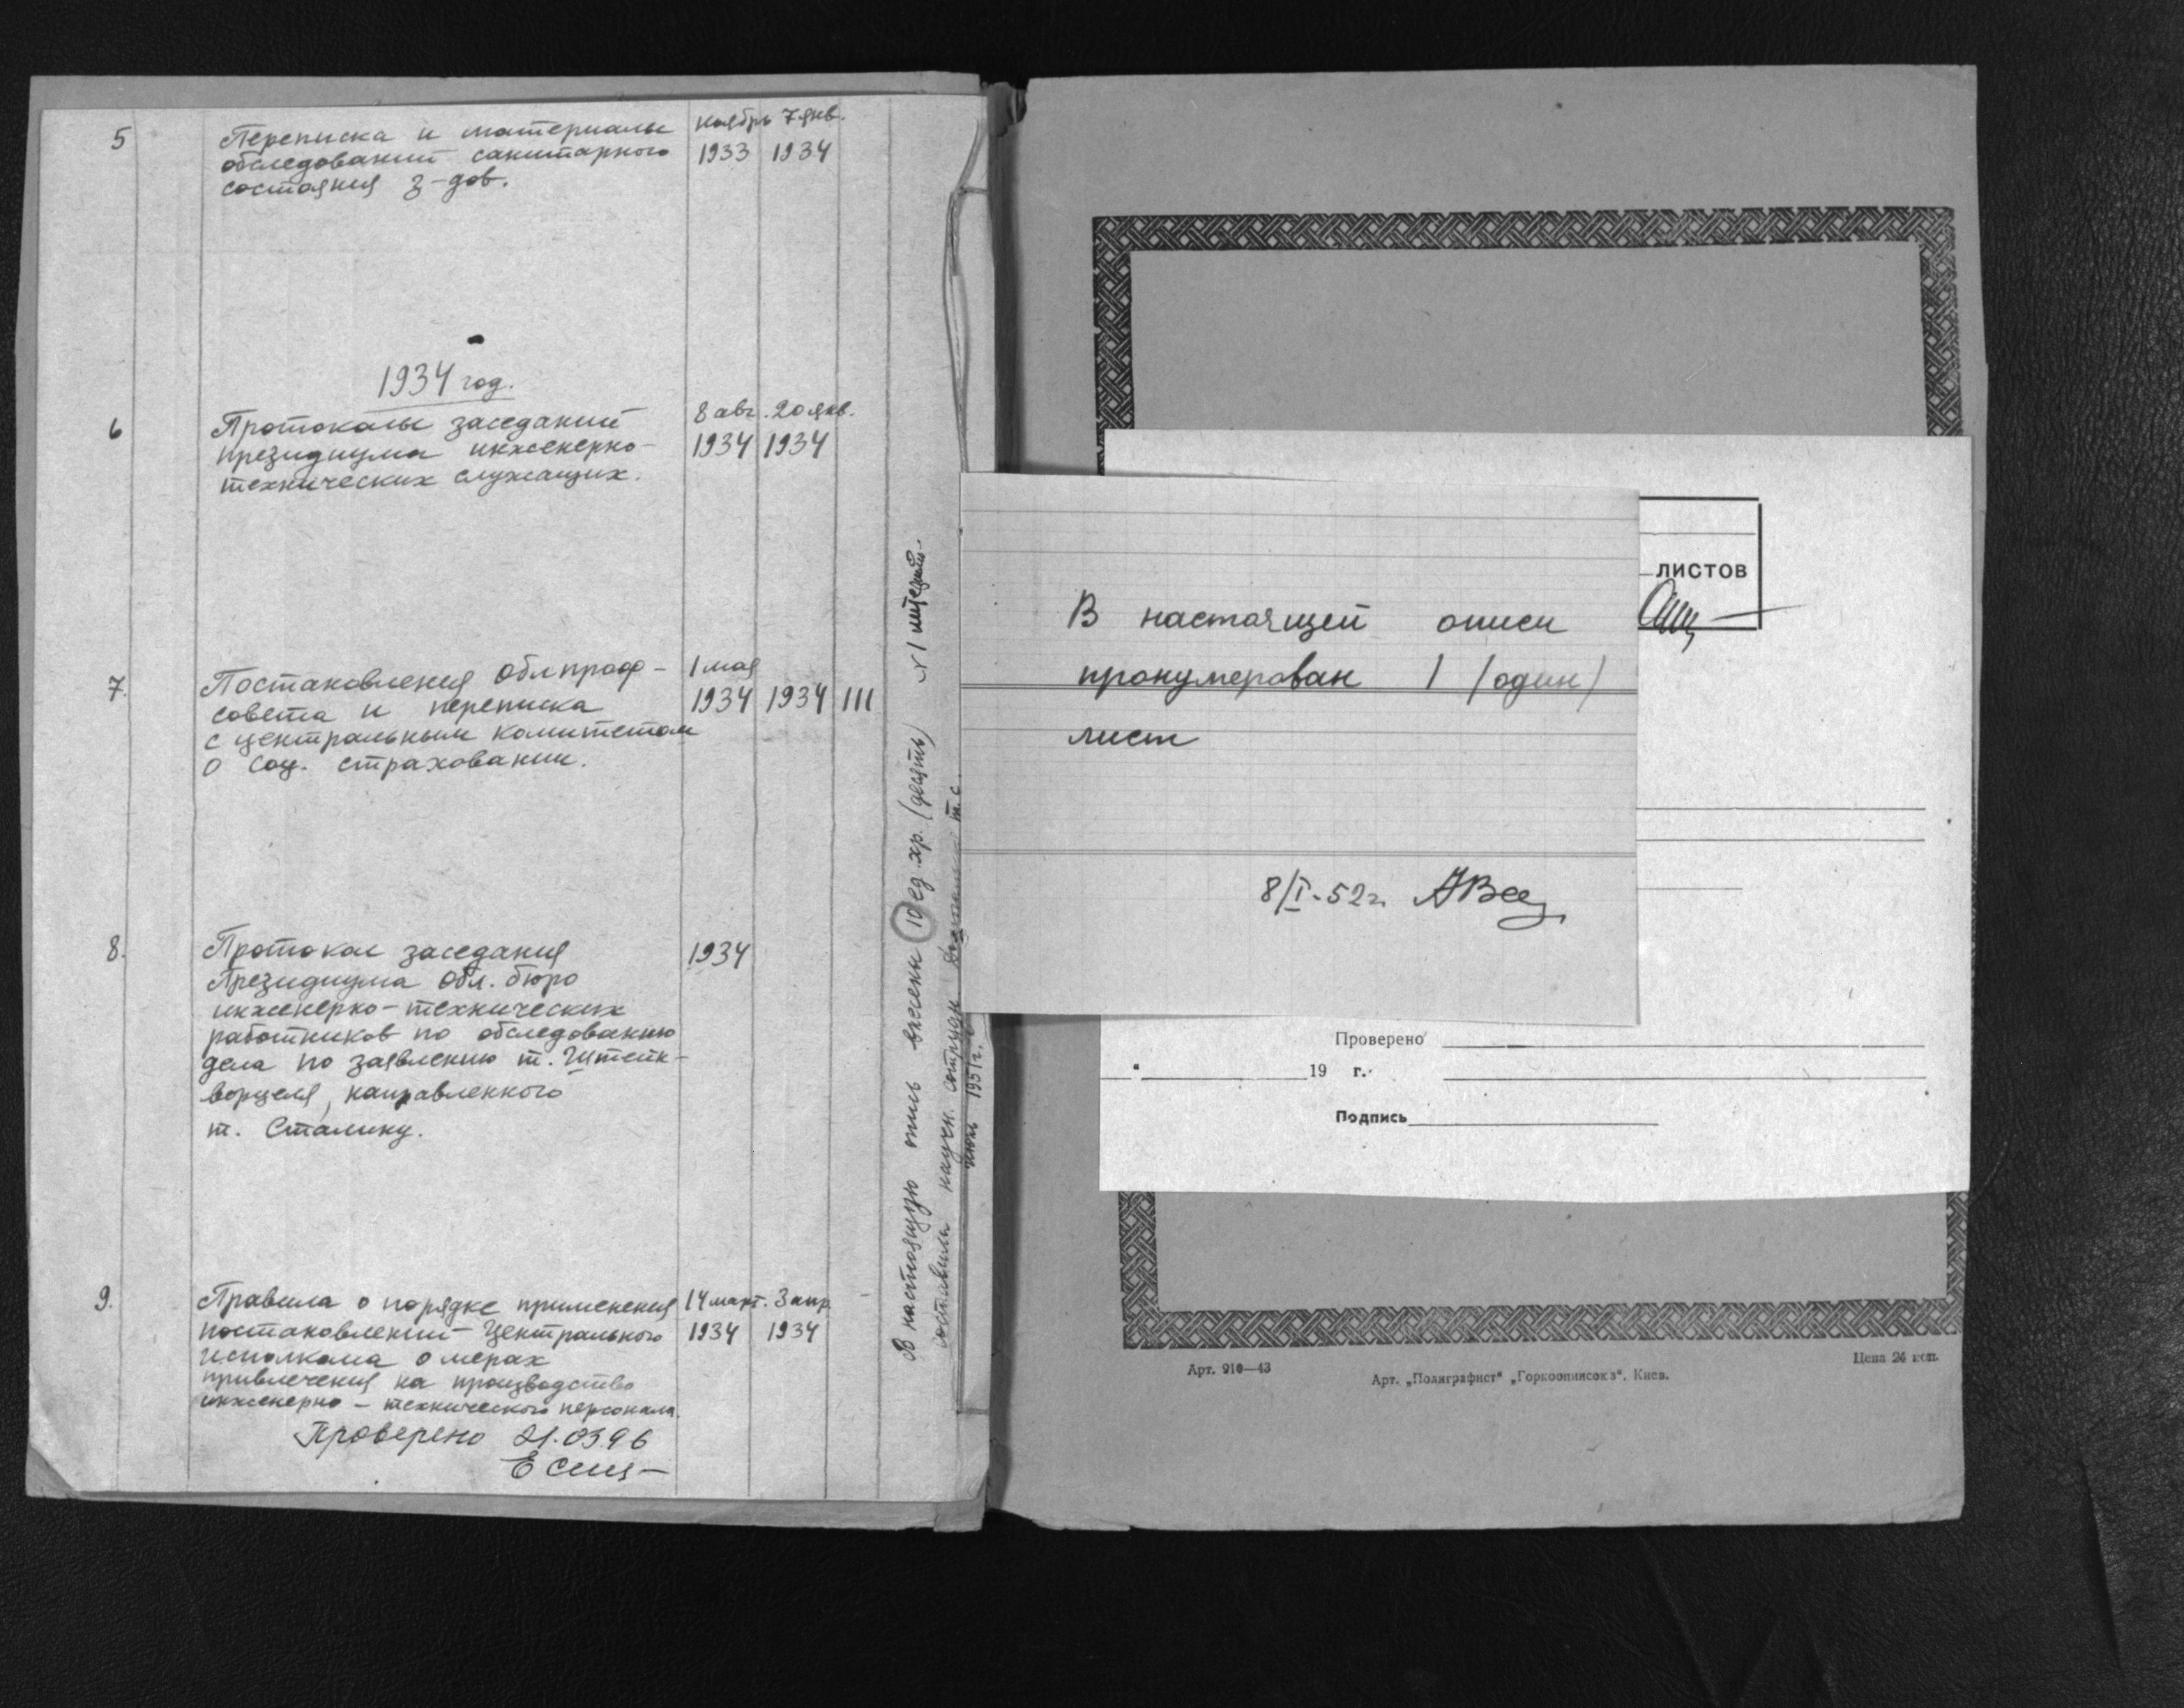 5 Переписка и материалы ноябрь 7 янв.
обследований санитарного 1933 1934
состояния з-дов.
1934 год.
6 Протоколы заседаний 8 авг. 20 янв.
президиума инженерно- 1934 1934
технических служащих.
7. Постановления Облпроф- 1 мая
совета и переписка 1934 1934 III
с центральным комитетом
о соц. страховании.
8. Протокол заседания 1934
Президиума Обл. бюро
инженерно-технических
работников по обследованию
дела по заявлению т. Штейн-
ворцеля, направленного
т. Сталину.
9. Правила о порядке применения 14 март. 3 апр.
постановлений Центрального 1934 1934
исполкома о мерах
привлечения на производство
инженерно-технического персонала.
Проверено 21.03.96
В настоящую опись внесены 10 ед. хр. (десять)
составила научн. сотрудн.
июль 1951 г.
В настоящей описи
пронумерован 1 /один/
лист
8/I-52 г.
листов
Проверено
19 г.
Подпись
Арт. 910—43
Арт. „Полиграфист“ „Горкоопинсоюз“. Киев.
Цена 24 коп.